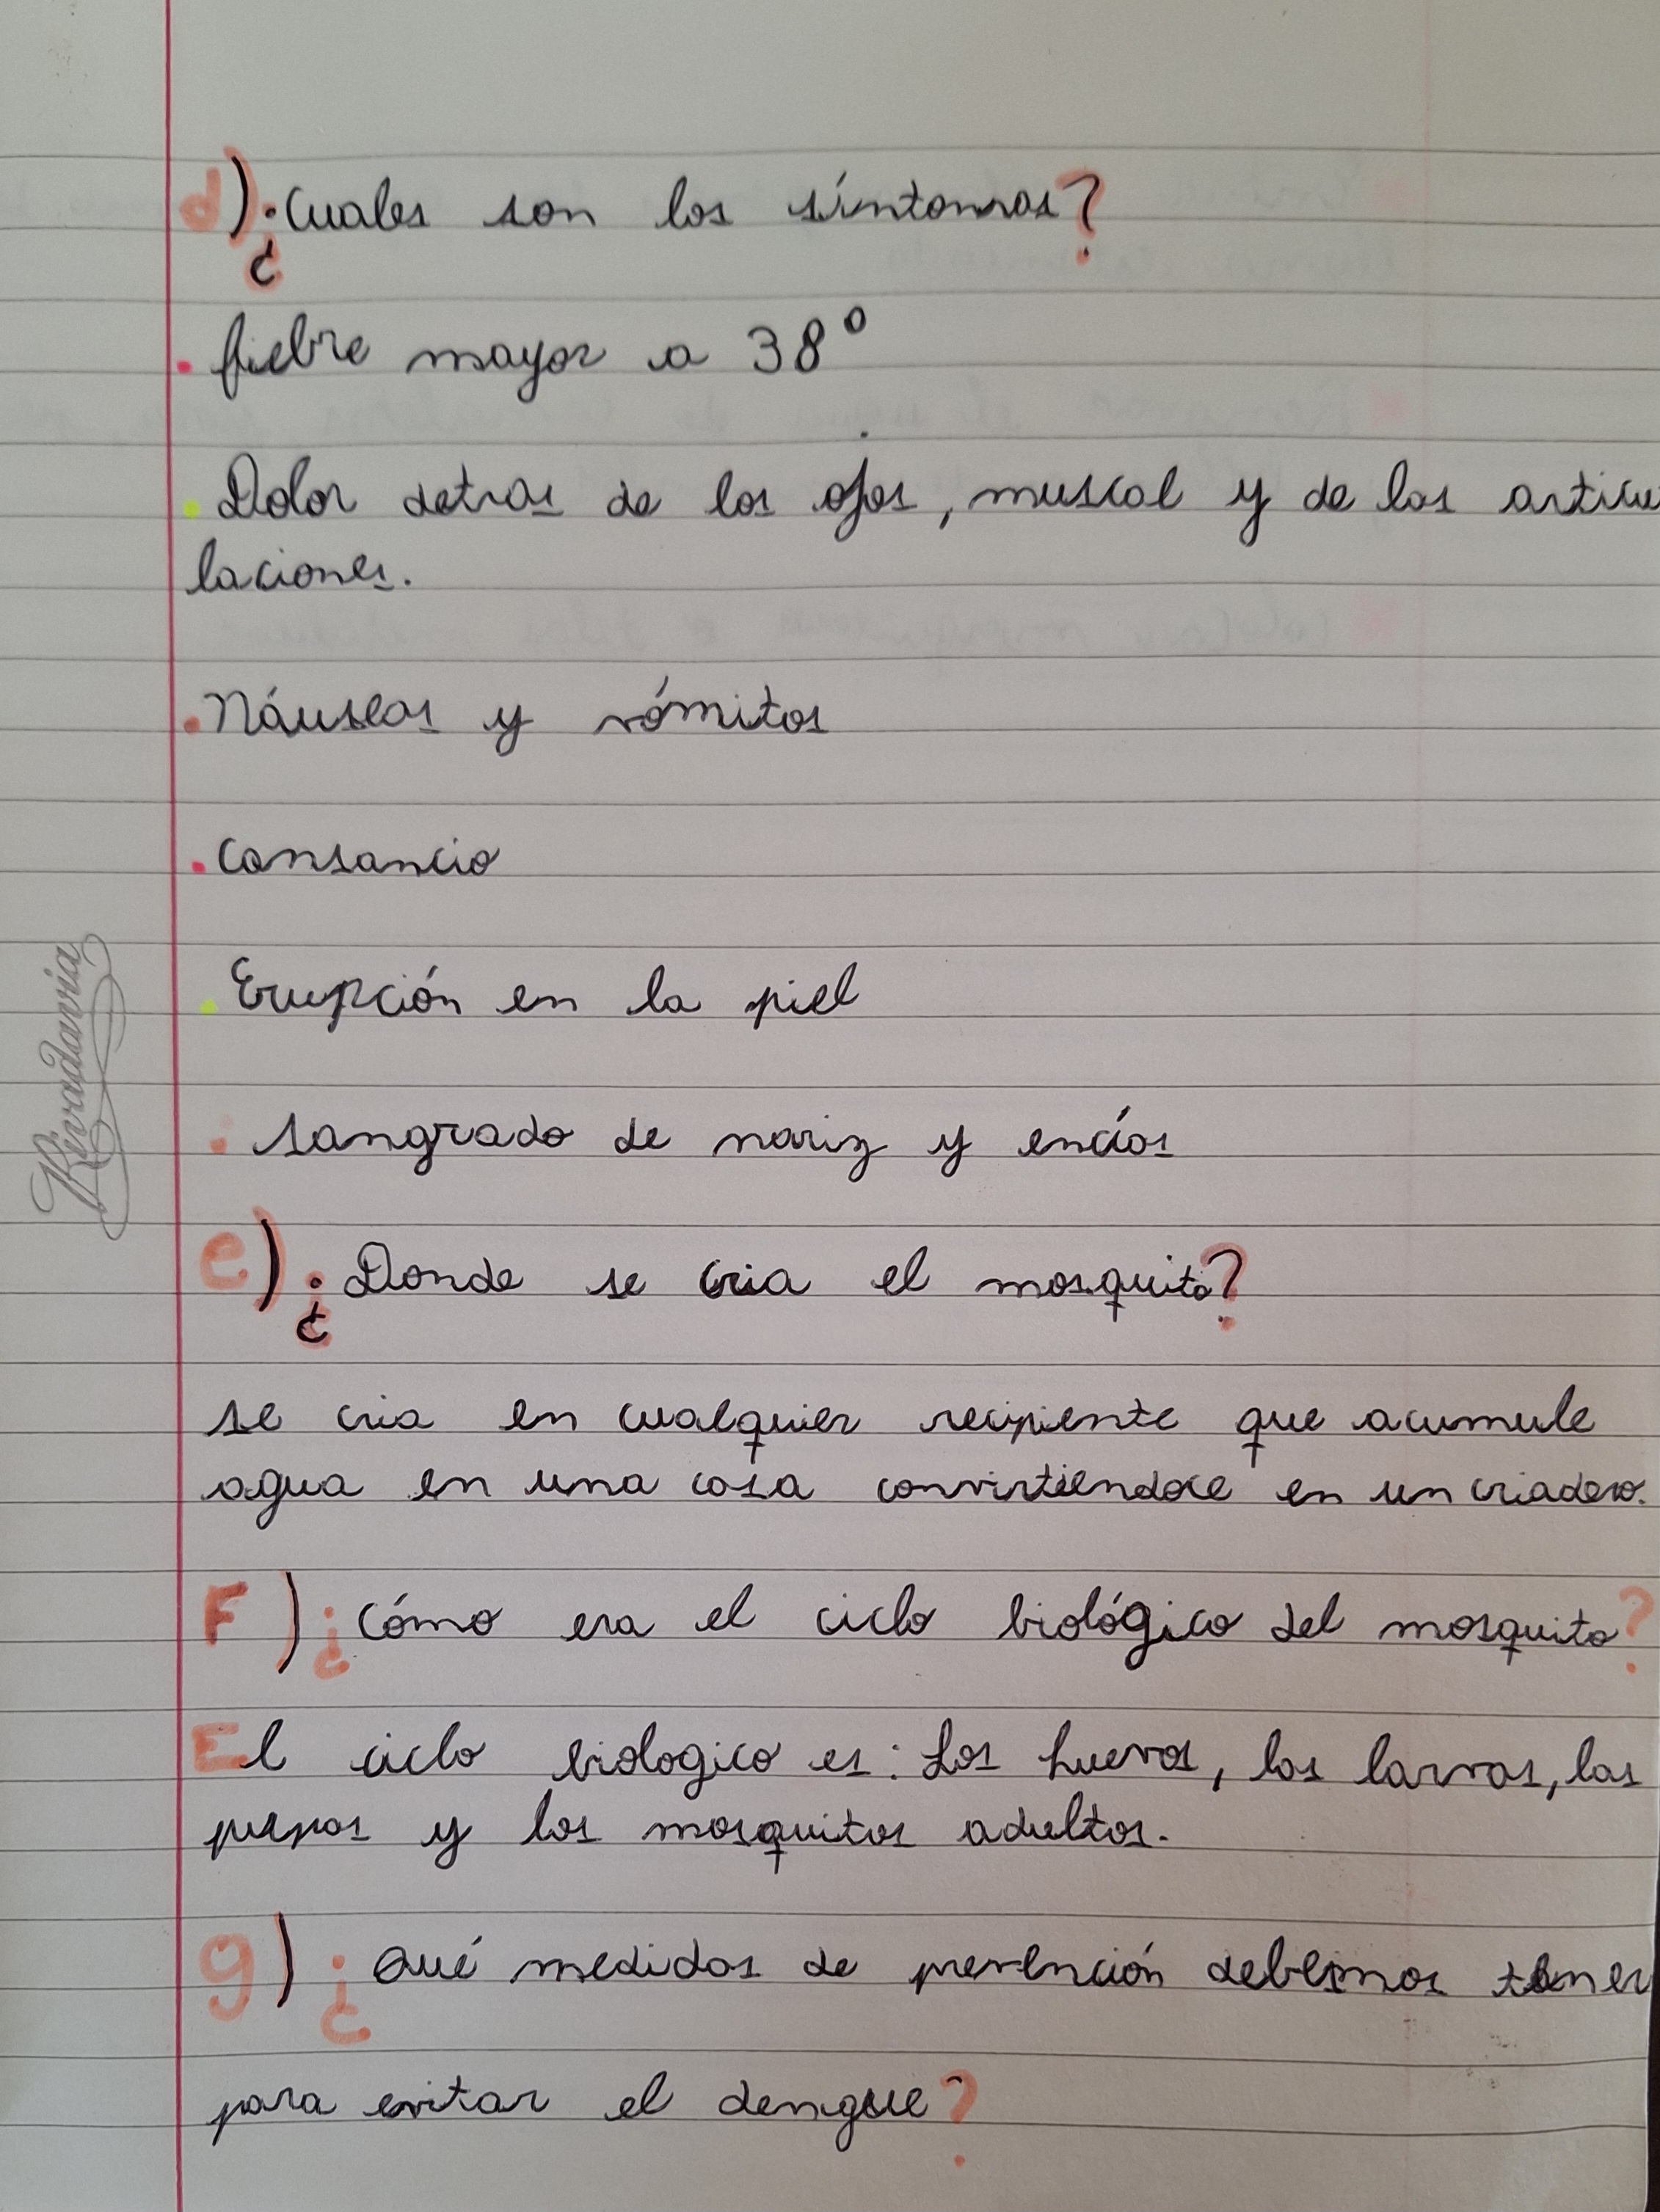 d) ¿Cuales son los síntomas?
• fiebre mayor a 38°
• Dolor detras de los ojos, muscal y de las articu
laciones.
• Náuseas y vómitos
• Cansancio
• Erupción en la piel
• sangrado de nariz y encías
e) ¿Donde se cria el mosquito?
se cria en cualquier recipiente que acumule
agua en una casa convirtiendoce en un criadero.
F) ¿Cómo era el ciclo biológico del mosquito?
El ciclo biologico es: Los huevos, las larvas, las
pupas y los mosquitos adultos.
g) ¿Qué medidas de prevención debemos tener
para evitar el dengue?
Rivadavia